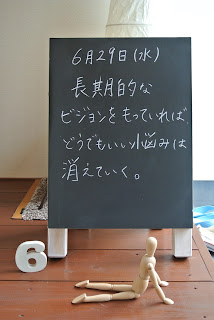 6月29日(水)
長期的な
ビジョンをもっていれば、
どうでもいい小悩みは
消えていく。
6